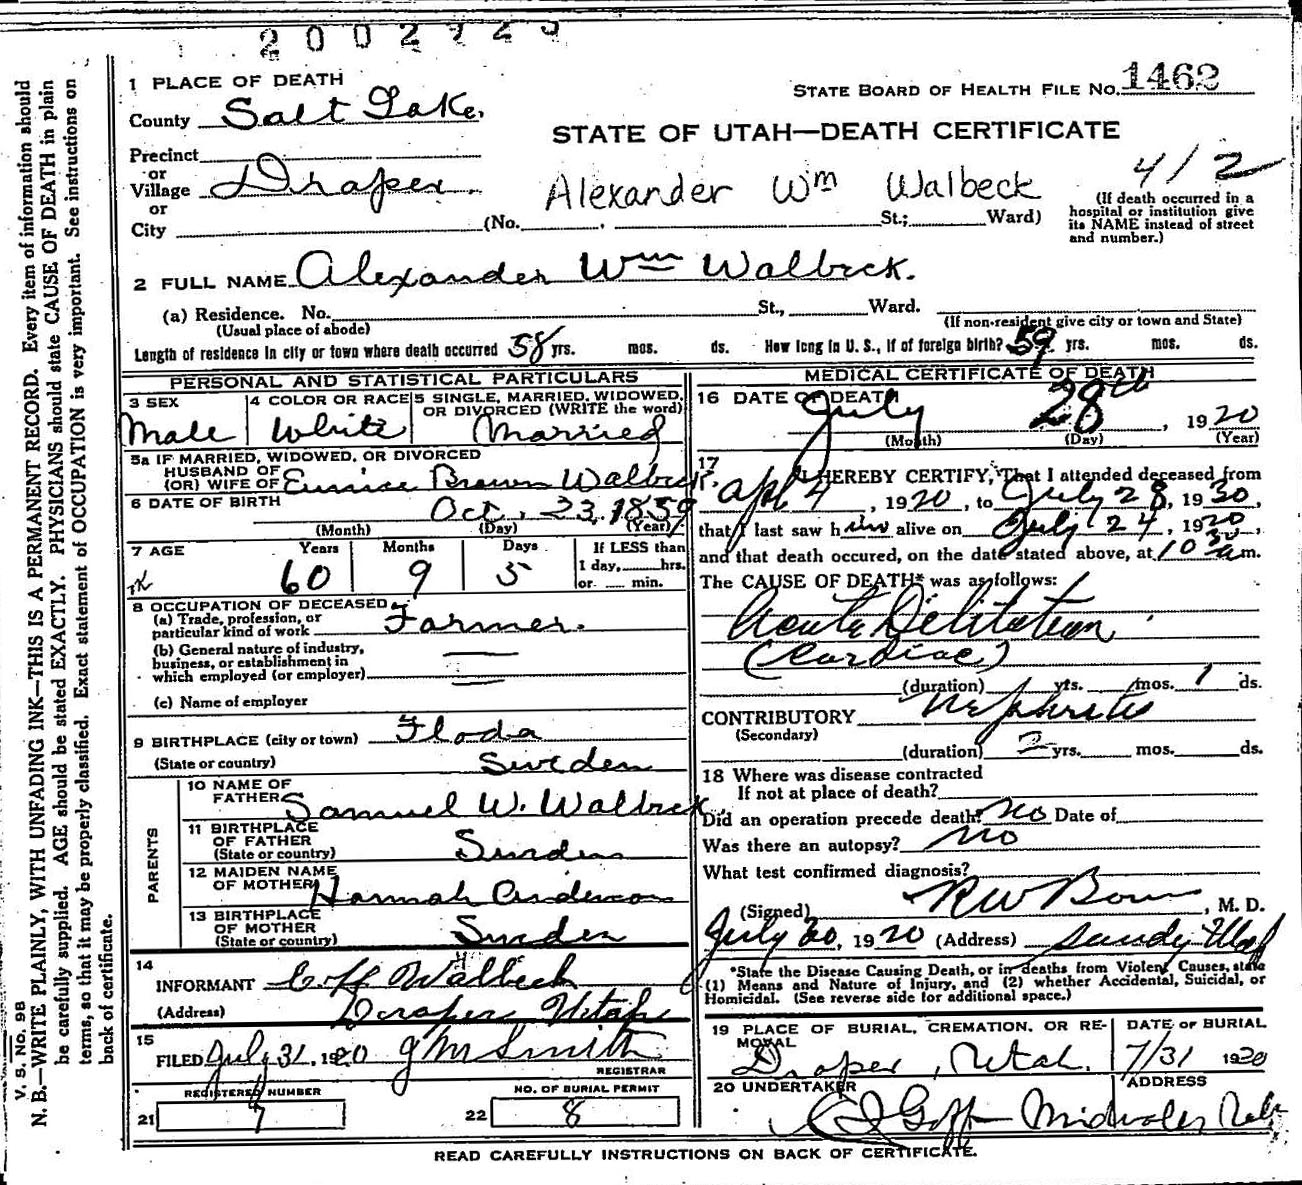 1 PLACE OF DEATH
STATE BOARD OF HEALTH FILE NO. 1462
County Salt Lake.
STATE OF UTAH—DEATH CERTIFICATE
Precinct
or
Village Draper.
or
City
Alexander Wm Walbeck
(No. , St.; Ward)
412
(If death occurred in a
hospital or institution give
its NAME instead of street
and number.)
2 FULL NAME Alexander Wm Walbeck.
(a) Residence. No. St., Ward.
(Usual place of abode)
(If non-resident give city or town and State)
Length of residence in city or town where death occurred 58 yrs. mos. ds. How long in U. S., if of foreign birth? 59 yrs. mos. ds.
PERSONAL AND STATISTICAL PARTICULARS
3 SEX
Male
4 COLOR OR RACE
White
5 SINGLE, MARRIED, WIDOWED,
OR DIVORCED (WRITE the word)
Married
5a IF MARRIED, WIDOWED, OR DIVORCED
HUSBAND OF
(OR) WIFE OF Eunice Brown Walbeck.
6 DATE OF BIRTH Oct. 23, 1859
(Month) (Day) (Year)
7 AGE Years Months Days
60 9 5
If LESS than
1 day, hrs.
or min.
8 OCCUPATION OF DECEASED
(a) Trade, profession, or
particular kind of work Farmer.
(b) General nature of industry,
business, or establishment in
which employed (or employer)
(c) Name of employer
9 BIRTHPLACE (city or town) Floda
(State or country) Sweden
PARENTS
10 NAME OF
FATHER Samuel W. Walbeck.
11 BIRTHPLACE
OF FATHER
(State or country) Sweden
12 MAIDEN NAME
OF MOTHER Hannah Anderson
13 BIRTHPLACE
OF MOTHER
(State or country) Sweden
14
INFORMANT Walbeck
(Address) Draper Utah
15
FILED July 31, 1920 J M Smith
REGISTRAR
REGISTERED NUMBER
21 7
NO. OF BURIAL PERMIT
22 8
MEDICAL CERTIFICATE OF DEATH
16 DATE OF DEATH
July 28th, 1920
(Month) (Day) (Year)
17 I HEREBY CERTIFY, That I attended deceased from
Apl 4, 1920, to July 28, 1920,
that I last saw him alive on July 24, 1920,
and that death occured, on the date stated above, at 10 30 a m.
The CAUSE OF DEATH* was as follows:
Acute Dilitation
(Cardiac)
(duration) yrs. mos. 1 ds.
CONTRIBUTORY Nephritis
(Secondary)
(duration) 2 yrs. mos. ds.
18 Where was disease contracted
If not at place of death?
Did an operation precede death? No Date of
Was there an autopsy? No
What test confirmed diagnosis?
(Signed) R W , M. D.
July 30, 1920 (Address) Sandy Utah
*State the Disease Causing Death, or in deaths from Violent Causes, state
(1) Means and Nature of Injury, and (2) whether Accidental, Suicidal, or
Homicidal. (See reverse side for additional space.)
19 PLACE OF BURIAL, CREMATION, OR RE-
MOVAL
Draper, Utah.
DATE OF BURIAL
7/31 1920
20 UNDERTAKER
Goff
ADDRESS
Midvale, Utah
READ CAREFULLY INSTRUCTIONS ON BACK OF CERTIFICATE.
V. S. No. 98
N. B.—WRITE PLAINLY, WITH UNFADING INK—THIS IS A PERMANENT RECORD. Every item of information should
be carefully supplied. AGE should be stated EXACTLY. PHYSICIANS should state CAUSE OF DEATH in plain
terms, so that it may be properly classified. Exact statement of OCCUPATION is very important. See instructions on
back of certificate.